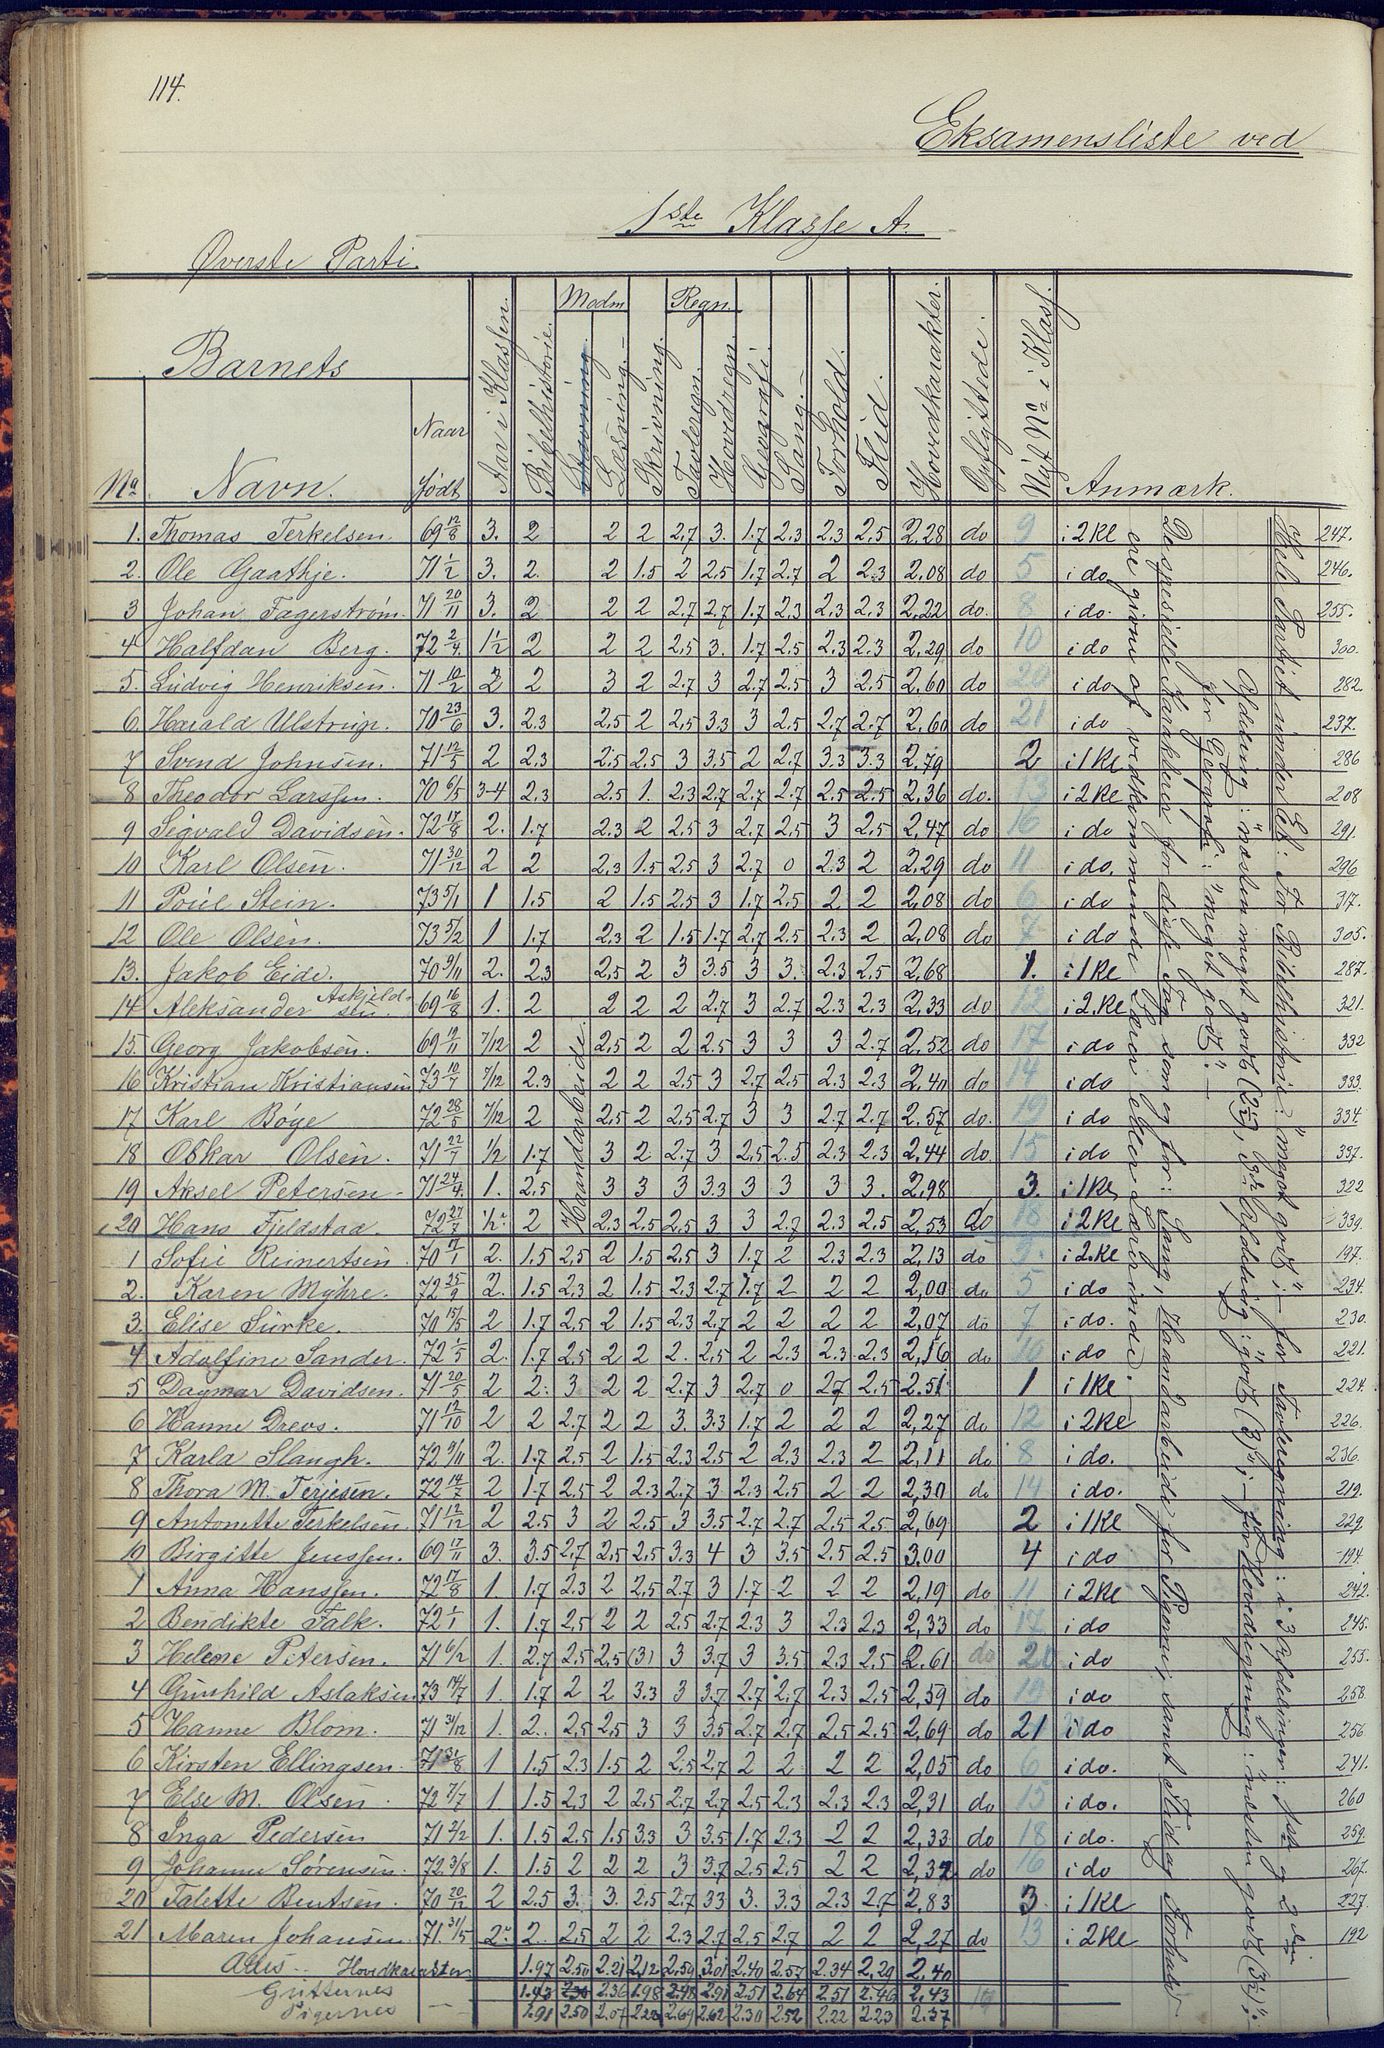 114.
Eksamensliste ved
1ste Klasse A.
Øverste Parti.
Barnets
No Navn. Naar født Aar i Klassen. Bibelhistorie. Modm Stavning. Læsning. Skrivning. Regn. Tavleregn. Hovedregn. Geografi. Sang. Forhold. Flid. Hovedkarakter. Opflyttede. Nyt No i Klass. Anmærk.
1. Thomas Terkelsen. 69 12/8 3. 2 2 2 2.7 3. 1.7 2.3 2.3 2.5 2,28 do 9 i 2 Kl 247.
2. Ole Gaathje. 71 1/2 3. 2. 2 1.5 2 2.5 1.7 2.7 2 2.3 2,08 do 5 i do 246.
3 Johan Fagerstrøm. 71 20/11 3. 2 2 2 2.7 2.7 1.7 2.3 2.3 2.3 2,22 do. 8 i do. 255.
4 Halfdan Berg. 72 2/4 1½ 2 2 2 2,5 3. 1.7 2.5 2.3 2.3 2,29 do 10 i do 300.
5. Ludvig Henriksen. 71 10/2 2 2 3 2 2.7 3 2.7 2.5 3 2.5 2,60 do 20 i do 282.
6. Harald Ulstrup. 70 23/6 3. 2.3 2,5 2 2,5 3.3 3 2.5 2.7 2.7 2,60 do 21 i do 237.
7 Svend Johnsen. 71 12/5 2 2.3 2.5 2.5 3 3.5 2 2.7 3.3 3.3 2.79 2 i 1 Kl 286
8 Theodor Larssen. 70 6/5 3-4 2.3 2.5 1. 2.3 2.7 2.7 2.7 2.5 2.5 2,36 do. 13 i 2 Kl 208
9 Sigvald Davidsen. 72 17/8 2. 1.7 2.3 2 2.5 3 2.7 2.5 3 2.5 2,47 do 16 i do 291.
10 Karl Olsen. 71 30/12 2 2 2.3 1.5 2.5 3 2.7 0 2.3 2 2,29 do 11 i do. 296
11 Poul Stein. 73 5/1 1 1.5 2 1.5 2.5 3 1.7 2,5 2 2 2,08 do 6 i do 317.
12 Ole Olsen. 73 5/2 1 1.7 2.3 2 1.5 1.7 2.7 2.5 2.3 2 2,08 do 7 i do 305.
13. Jakob Eide. 70 9/11 2. 2.3 2,5 2 3 3.5 3 3. 2.3 2.5 2,68 1. i 1 Kl 287.
14 Aleksander Askjeldsen. 69 16/8 1. 2 2 2 2 2.7 3 2.7 2.3 2.3 2,33 do 12 i 2. Kl 321.
15. Georg Jakobsen. 69 19/11 7/12 2 2,5 2 2 2.5 3 3 3 2.7 2.52 do 17 i do 332
16 Kristian Kristiansen 73 10/7 7/12 2.3 2 2 2,5 3 2.7 2.5 2.3 2.3 2,40 do 14 i do 333.
17 Karl Bøge 72 28/5 7/12 2 2,5 2 2,5 2.7 3 3 2.7 2.7 2.57 do. 19 i do 334.
18 Oskar Olsen. 71 22/7 ½ 1.7 3 2 2.7 3 2,5 2.5 2.3 2.3 2,44 do. 15 i do 337.
19 Aksel Petersen. 71 24/4. 1. 2.5 3 3 3 3.3 3 3 3 3. 2,98 3. i 1 Kl 322
20 Hans Fjeldstad. 72 27/7 ½. 2 2.3 2.5 2,5 3 3 2.7 2.3 2.5 2,53 do 18 i 2 Kl 339.
Haandarbeide.
1 Sofie Reinertsen 70 17/1 2. 1.5 2,5 2 1.5 2,5 3 1.7 2 2.3 2.3 2,13 do i 2. Kl 197.
2. Karen Myhre. 72 25/9 2. 1.5 2.3 2 1.5 2.3 2.7 1.7 2 2 2 2,00 do 5 i do 234.
3. Elise Surke. 70 15/5 2 1.7 2.5 2 1.5 2.3 2.7 2 2 2 2 2,07 do 7 i do. 230.
4 Adolfine Sander. 72 1/5 2. 1.7 2.5 2 2 2. 2,5 2 2.3 2.3 2.3 2,16 do 10 i do 221.
5 Dagmar Davidsen. 71 20/5 2 2. 3 2 2 2.7 3 2.7 0 2.7 2.5 2.51 1 i 1 Kl 224.
6 Hanne Drevs. 71 12/10 2 2 2.7 2 2 3. 3.3 1.7 2 2 2 2,27 do 12 i 2 Kl 226.
7 Karla Slangh. 72 9/11 2. 1.7 2.5 2 1.5 2.3 2.5 2 2.3 2.3 2 2,11 do 8 i do. 236.
8 Thora M. Terjesen. 72 14/7 2 1.7 2.5 2 2.3 2.7 3 2.3 2.5 2 2 2,30 do 14 i do. 219.
9 Antonette Terkelsen. 71 12/12 2 2.5 3 2 2.5 3 3.5 2.7 2.7 2.5 2.5 2,69 2 i 1 Kl 229.
10 Birgitte Jenssen. 69 17/11 3. 3.5 2.7 2,5 2.5 3.3 4 3 3.5 2.5 2.5 3.00 4 i do 194.
1 Anna Hanssen. 72 17/8 1 1.7 2.3 2 2,5 2.7 3 1.7 2 2 2 2,19 do 11 i 2 Kl 242.
2 Bendikte Falk. 72 1/1 1. 1.7 2,5 2 2 2.5 2.7 2.3 3 2.3 2.3 2,33 do 17 i do 245.
3 Helene Petersen. 71 6/2 1. 2.7 2.5 2,5 (3) 3 3.7 3 3.5 2.3 2.5 2.61 do 20 i do 255.
4 Gunhild Aslaksen 73 14/7 1. 1.7 2 2 3.3 3 3.7 2.7 2.7 2.3 2.5 2,59 do 19 i do 258.
5 Hanne Blom. 71 31/12 1. 2.. 2,5 2,5 3 3 3.5 2.7 2.7 2.5 2.5 2,69 do 21 i do 256.
6 Kirsten Ellingsen. 71 31/8 1 1.5 2.3 1.5 2 2,5 2.7 2 2 2 2 2,05 do 6 i do. 241.
7 Else M. Olsen 72 7/7 1 1.5 2.3 2 2.5 2.7 2.7 2.5 2.3 2.3 2.3 2,31 do 15 i do. 260
8 Inga Pedersen 71 2/2 1. 1.5 2.5 1.5 3.3 3 3.5 1.7 2.3 2 2 2,33 do 18 i do. 259.
9 Johanne Sørensen. 72 3/8 1. 1.5 2 2 2 3 3.7 2.5 2,5 2 2 2,32 do 16 i do 267.
20 Talette Bentsen. 70 20/12 2 2.5 3. 3. 2.5 2.7 33 3. 3.3 2.3 2.7 2,83 3. i 1 Kl 227.
21 Maren Johansen. 71. 31/5 2. 2.. 2.5 2 2 2.3 2.7 2.5 2.7 2 2 2,27 do 13 i 2 Kl 192
Alles Hovedkarakter 1.97 2.50 2.21 2,12 2.59 3.01 2.40 2.57 2.34 2,29 2,40
Gutternes 2.36 1.98 2.48 2.91 2.51 2.64 2.51 2.46 2,43
Pigernes 1.91 2.50 2.07 2.69 2.62 2.30 2.52 2.22 2.23 2.37
Hele Partiet under Et: For Bibelhistorie: "meget godt"; - for Tavleregning: i 3 Afdelinger: 1ste og 2den
Afdeling: "næsten meget godt" (2½), 3die Afdeling: "godt" (3)"; - for Hovedregning: "næsten godt" (3½)";
for Geografi: "meget godt". -
De spesielle Karakterer for disse Fag som og for: Sang, Haandarbeide for Pigerne, samt Flid og Forhold
ere givne af vedkommende Lærer eller Lærerinde.